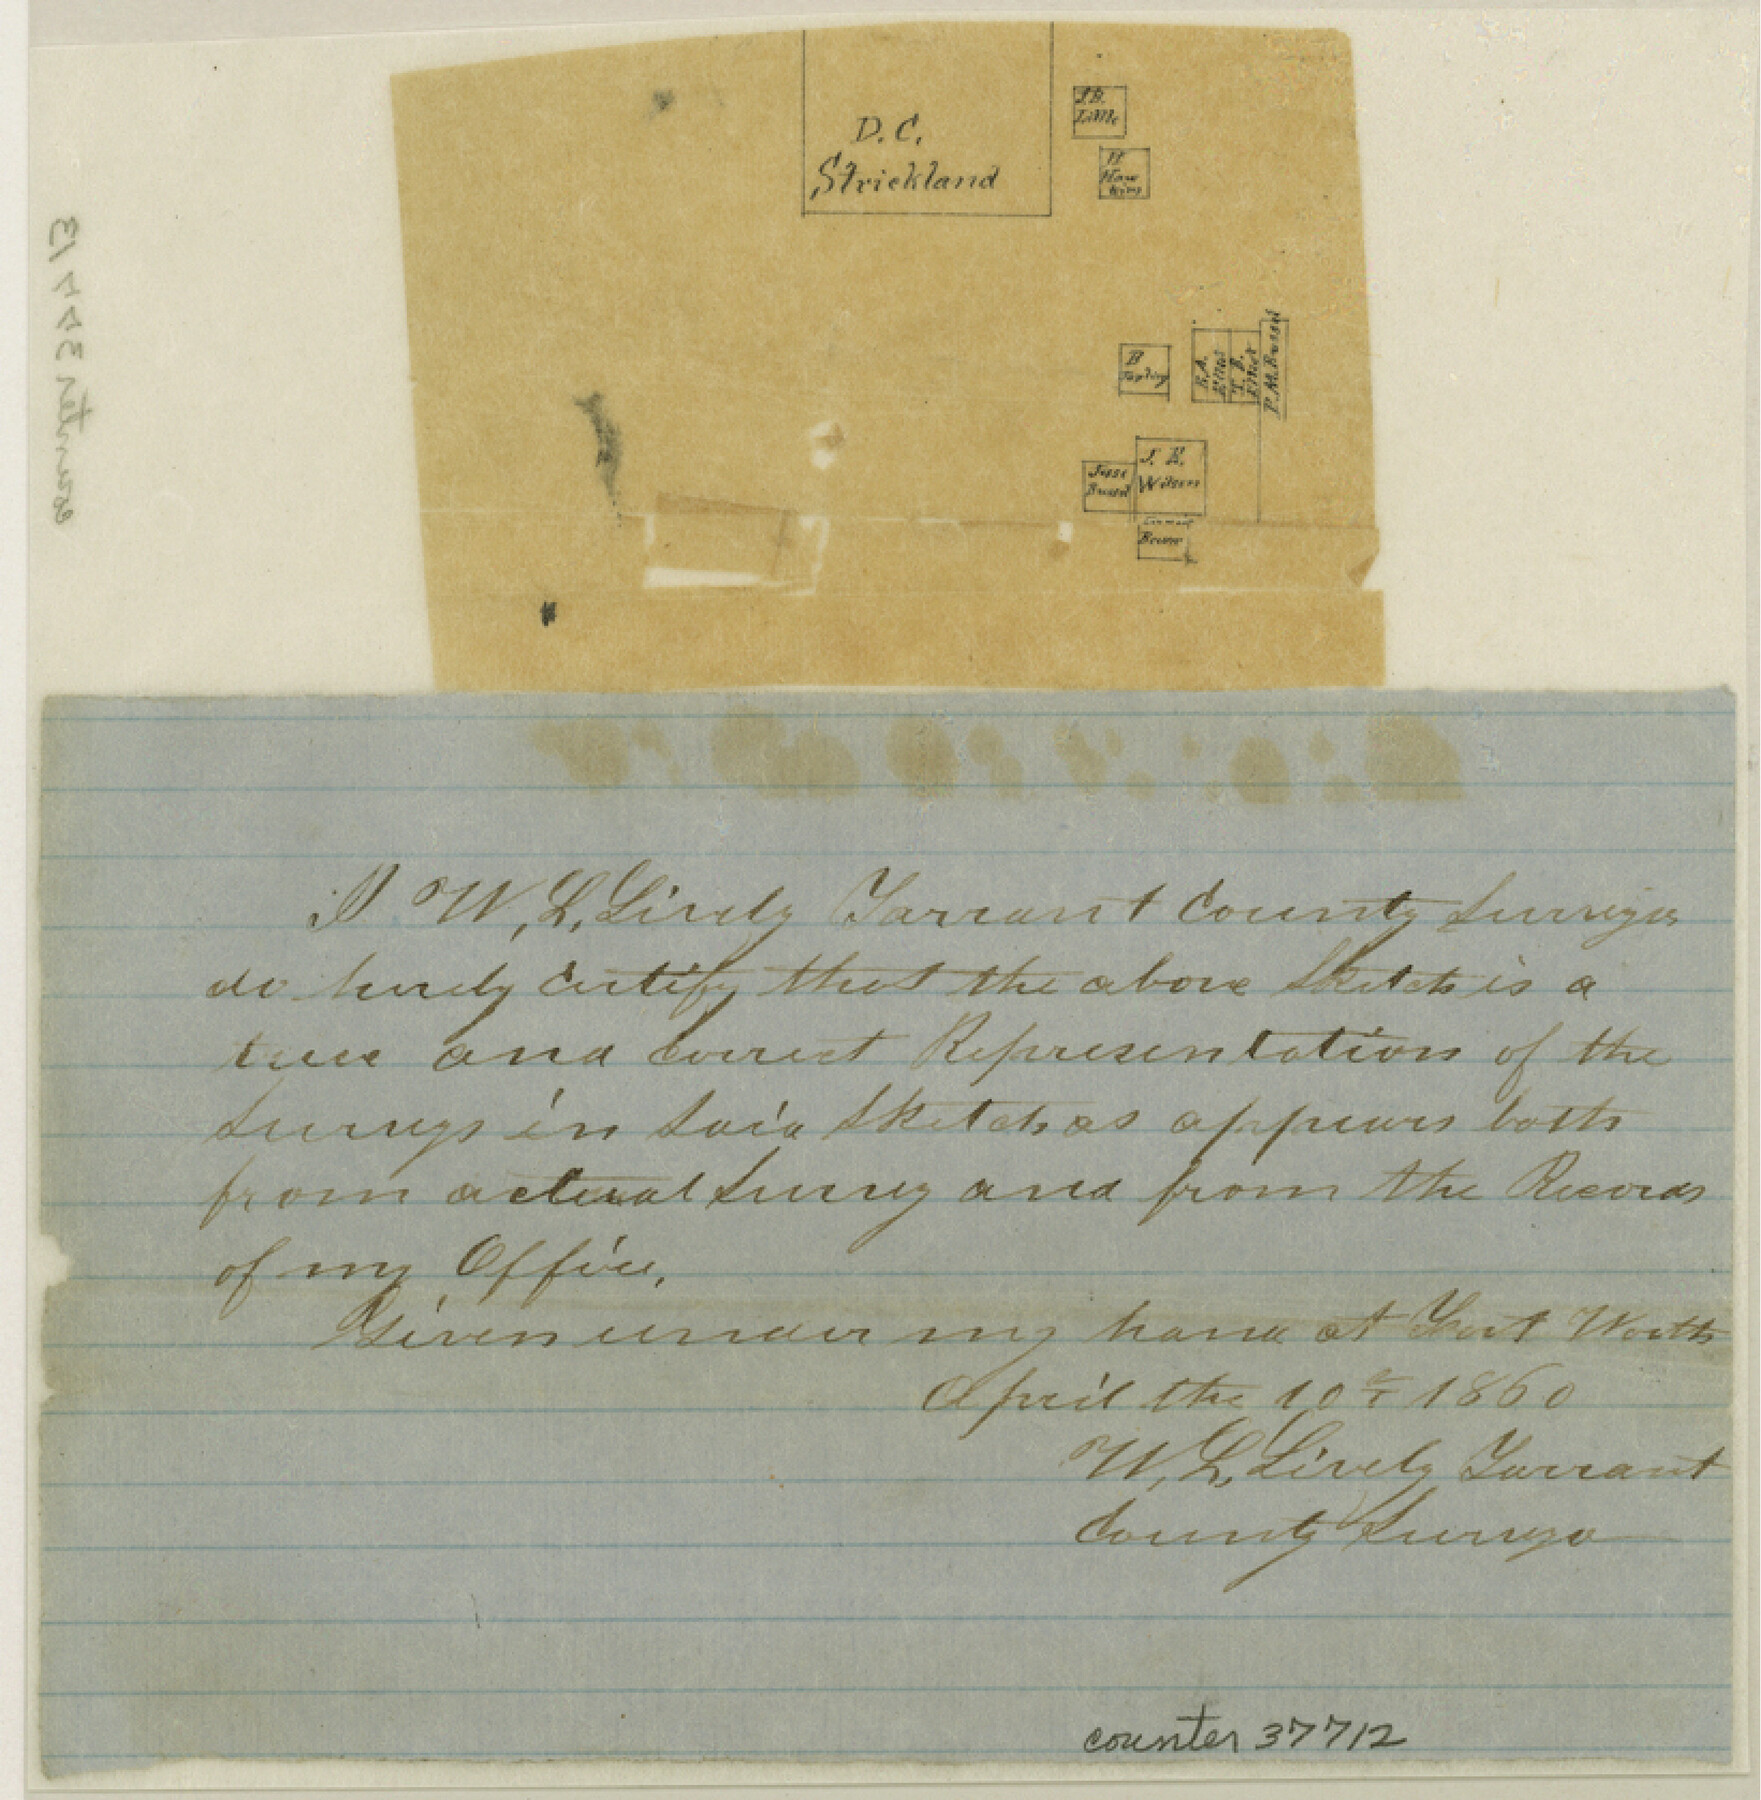 D. C.
Strickland
J. B.
Little
H
Haw
kins
B
E. A.
Elliot
T. B.
Elliot
P. M. Brussel
Jesse
Brussel
J. E.
Wilson
Brown
I W, L, Lively Tarrant County Surveyor
do hereby Certify that the above Sketch is a
true and Correct Representation of the
Surveys in Said Sketch as appears both
from actual Survey and from the Records
of my Office,
Given under my hand at Fort Worth
April the 10th 1860
W, L, Lively Tarrant
County Surveyo
counter 37712
counter 37713